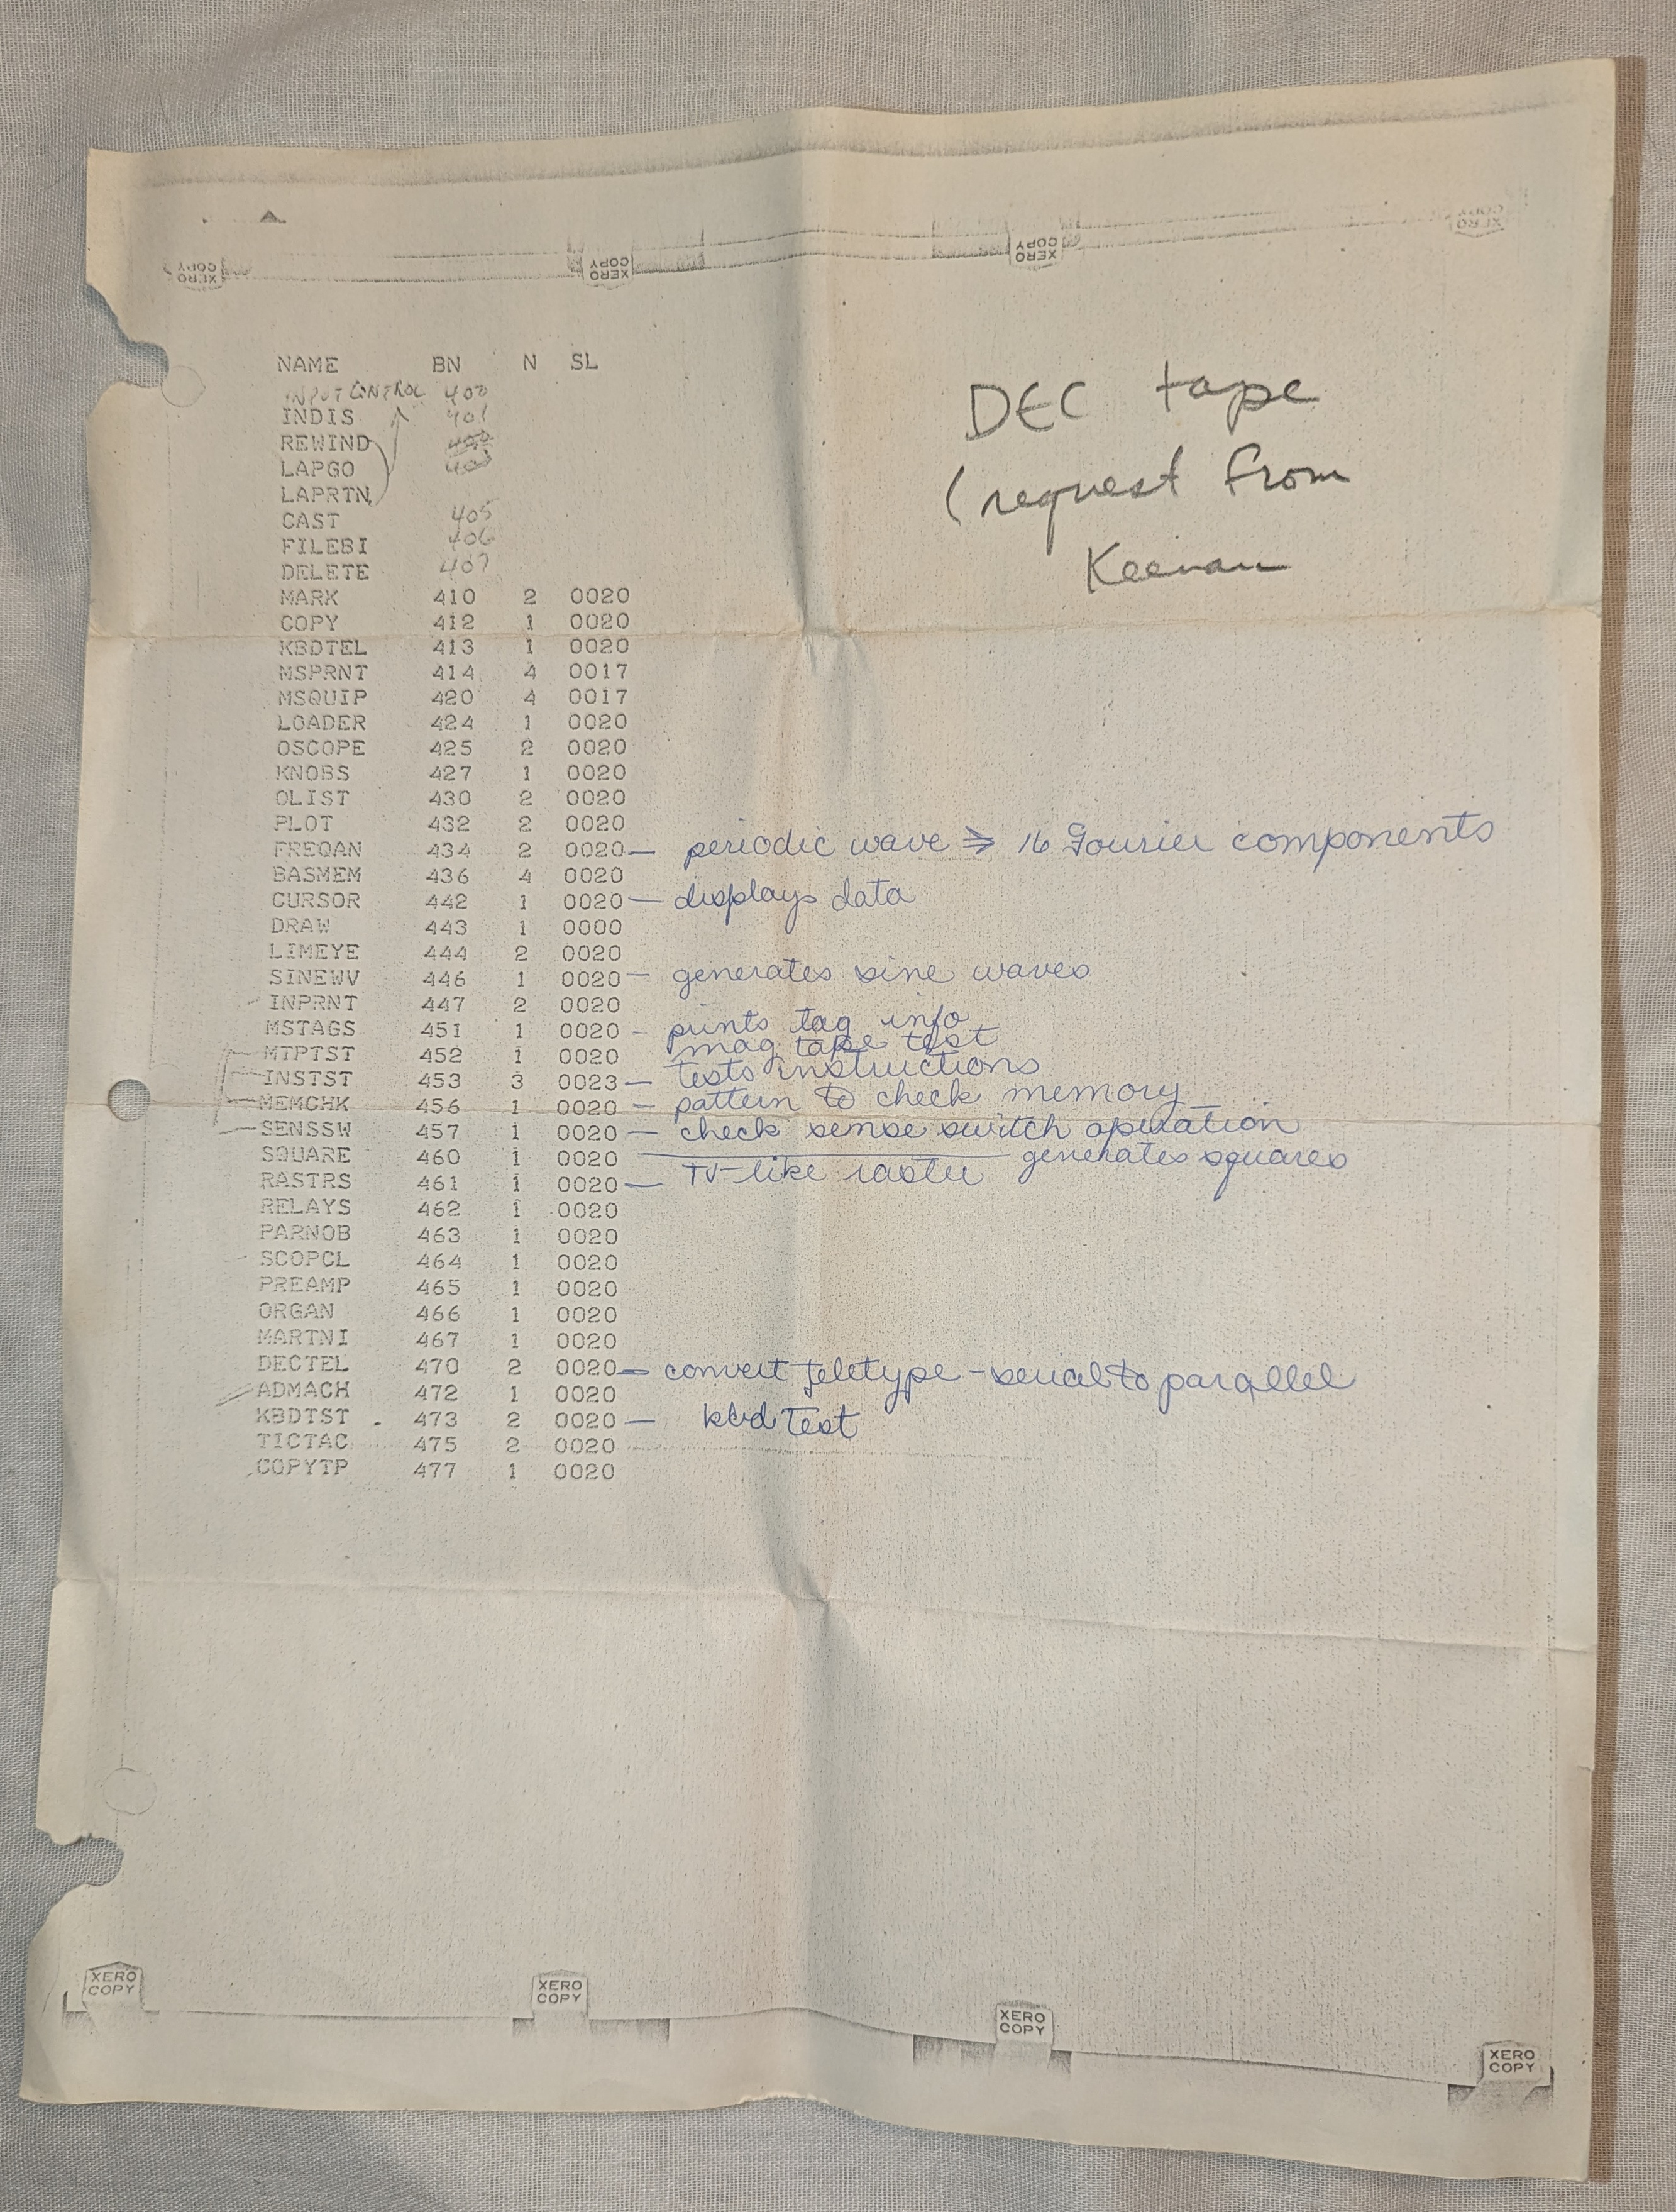 XERO COPY
XERO COPY
XERO COPY
XERO COPY
NAME BN N SL
INPUT CONTROL 400
INDIS 401
REWIND
LAPGO 403
LAPRTN
CAST 405
FILEBI 406
DELETE 407
DEC tape
(request from
Keenan
MARK 410 2 0020
COPY 412 1 0020
KBDTEL 413 1 0020
MSPRNT 414 4 0017
MSQUIP 420 4 0017
LOADER 424 1 0020
OSCOPE 425 2 0020
KNOBS 427 1 0020
OLIST 430 2 0020
PLOT 432 2 0020
FREQAN 434 2 0020 — periodic wave ⇒ 16 Fourier components
BASMEM 436 4 0020
CURSOR 442 1 0020 — displays data
DRAW 443 1 0000
LIMEYE 444 2 0020
SINEWV 446 1 0020 — generates sine waves
INPRNT 447 2 0020
MSTAGS 451 1 0020 — prints tag info
MTPTST 452 1 0020 mag tape test
INSTST 453 3 0023 — tests instructions
MEMCHK 456 1 0020 — pattern to check memory
SENSSW 457 1 0020 — check sense switch operation
SQUARE 460 1 0020 — generates squares
RASTRS 461 1 0020 — TV-like raster
RELAYS 462 1 0020
PARNOB 463 1 0020
SCOPCL 464 1 0020
PREAMP 465 1 0020
ORGAN 466 1 0020
MARTNI 467 1 0020
DECTEL 470 2 0020 — convert teletype - serial to parallel
ADMACH 472 1 0020
KBDTST 473 2 0020 — kbd test
TICTAC 475 2 0020
COPYTP 477 1 0020
XERO COPY
XERO COPY
XERO COPY
XERO COPY